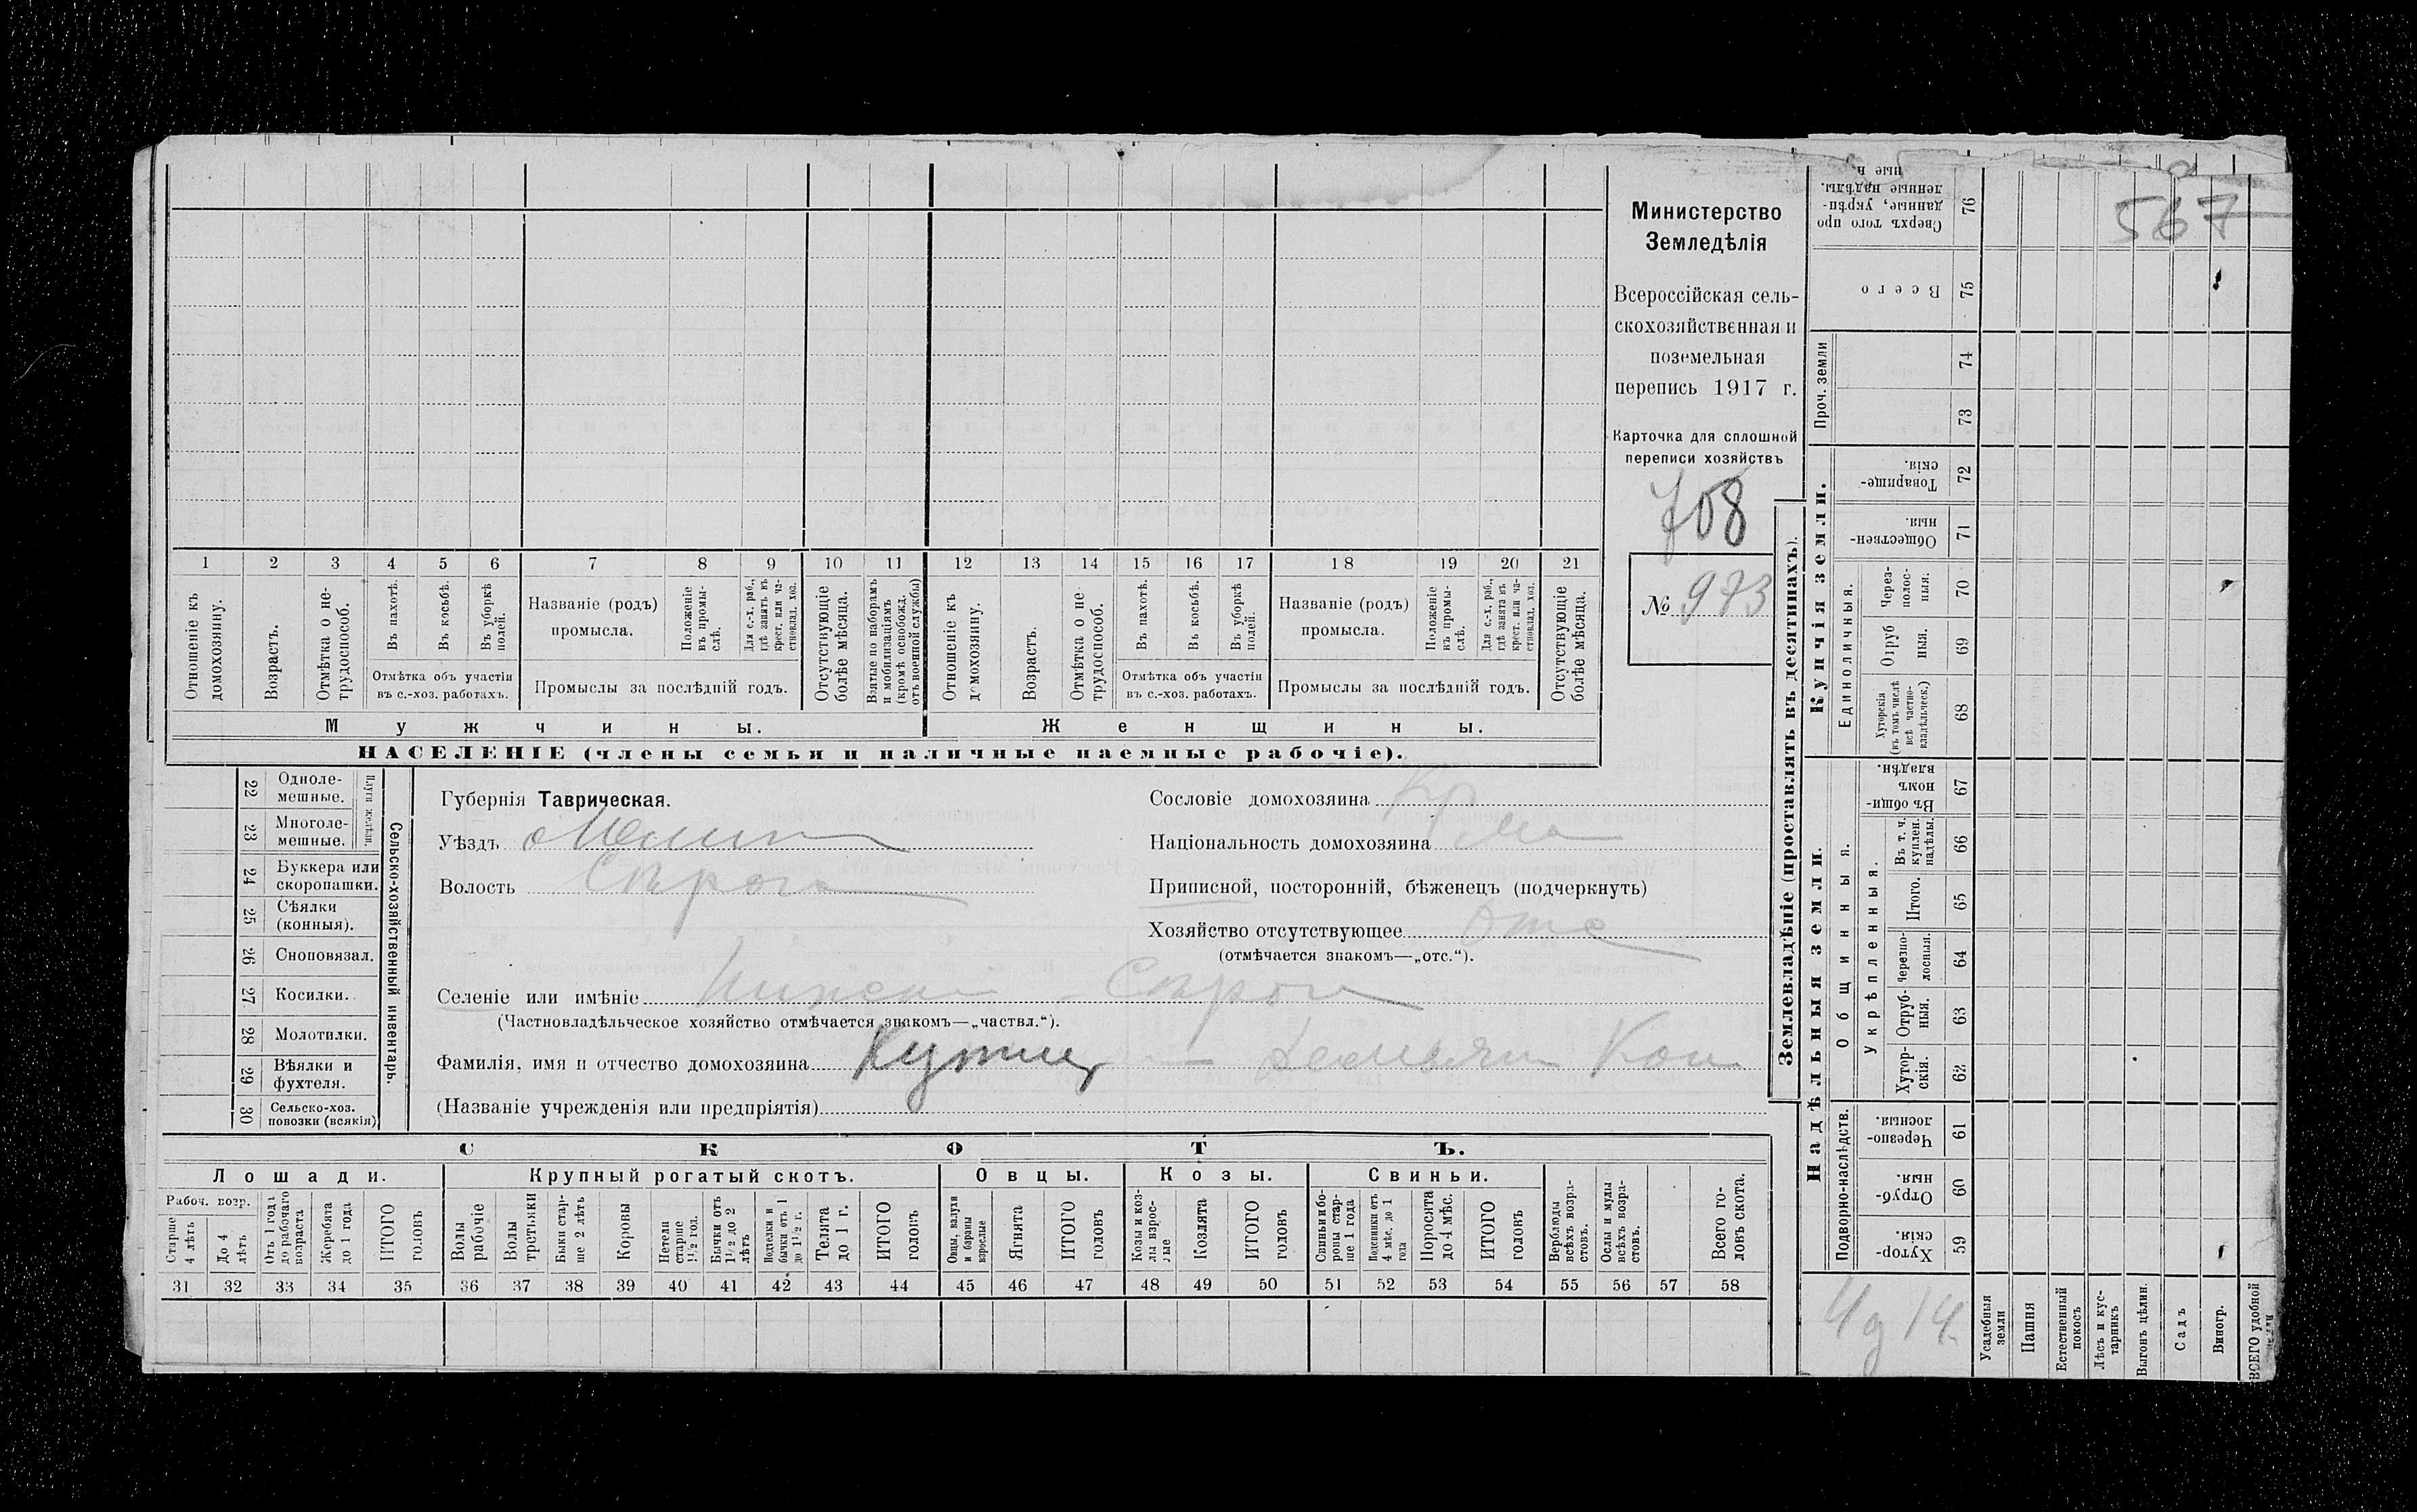 Министерство
Земледѣлія
Всероссійская сель-
скохозяйственная и
поземельная
перепись 1917 г.
Карточка для сплошной
переписи хозяйствъ
708
№ 973
567
1 2 3 4 5 6 7 8 9 10 11 12 13 14 15 16 17 18 19 20 21
Отношеніе къ домохозяину.
Возрастъ.
Отмѣтка о не-трудоспособ.
Въ пахотѣ.
Въ косьбѣ.
Въ уборкѣ полей.
Отмѣтка объ участіи
въ с.-хоз. работахъ.
Названіе (родъ)
промысла.
Положеніе въ промы-слѣ.
Для с.-х. раб., гдѣ занятъ въ крест. или ча-стновлад. хоз.
Промыслы за послѣдній годъ.
Отсутствующіе болѣе мѣсяца.
Взятые по наборамъ и мобилизаціямъ (кромѣ освобожд. отъ военной службы)
Отношеніе къ домохозяину.
Возрастъ.
Отмѣтка о не-трудоспособ.
Въ пахотѣ.
Въ косьбѣ.
Въ уборкѣ полей.
Отмѣтка объ участіи
въ с.-хоз. работахъ.
Названіе (родъ)
промысла.
Положеніе въ промы-слѣ.
Для с.-х. раб., гдѣ занята въ крест. или ча-стновлад. хоз.
Промыслы за послѣдній годъ.
Отсутствующіе болѣе мѣсяца.
Мужчины.
Женщины.
НАСЕЛЕНІЕ (члены семьи и наличные наемные рабочіе).
22 Одноле-мешные.
23 Многоле-мешные.
Плуги желѣзн.
24 Буккера или скоропашки.
25 Сѣялки (конныя).
26 Сноповязал.
27 Косилки.
28 Молотилки.
29 Вѣялки и фухтеля.
30 Сельско-хоз. повозки (всякія)
Сельско-хозяйственный инвентарь.
Губернія Таврическая.
Уѣздъ Мелит
Волость
Сословіе домохозяина Кр
Національность домохозяина Мал
Приписной, посторонній, бѣженецъ (подчеркнуть)
Хозяйство отсутствующее отс
(отмѣчается знакомъ—„отс.“).
Селеніе или имѣніе
(Частновладѣльческое хозяйство отмѣчается знакомъ—„частвл.“).
Фамилія, имя и отчество домохозяина Демьян Кон
(Названіе учрежденія или предпріятія)
СКОТЪ.
Лошади.
Крупный рогатый скотъ.
Овцы.
Козы.
Свиньи.
Рабоч. возр.
Старше 4 лѣтъ
До 4 лѣтъ
Отъ 1 года до рабочаго возраста
Жеребята до 1 года
ИТОГО головъ
Волы рабочіе
Волы третьяки
Быки стар-ше 2 лѣтъ
Коровы
Нетели старше 1½ год.
Бычки отъ 1½ до 2 лѣтъ
Подтелки и бычки отъ 1 до 1½ г.
Телята до 1 г.
ИТОГО головъ
Овцы, валухи и бараны взрослые
Ягнята
ИТОГО головъ
Козы и коз-лы взрос-лые
Козлята
ИТОГО головъ
Свиньи и бо-ровы стар-ше 1 года
Подсвинки отъ 4 мѣс. до 1 года
Поросята до 4 мѣс.
ИТОГО головъ
Верблюды всѣхъ возра-стовъ.
Ослы и мулы всѣхъ возра-стовъ.
Всего го-ловъ скота.
31 32 33 34 35 36 37 38 39 40 41 42 43 44 45 46 47 48 49 50 51 52 53 54 55 56 57 58
Землевладѣніе (проставлять въ десятинахъ).
Надѣльныя земли.
Купчія земли.
Проч. земли
Подворно-наслѣдств.
Общинныя.
Укрѣпленныя.
Единоличныя.
Хутор-скія. 59
Отруб-ныя. 60
Черезпо-лосныя. 61
Хутор-скія. 62
Отруб-ныя. 63
Черезпо-лосныя. 64
Итого. 65
Въ т. ч. куплен. надѣлы. 66
Въ общи-номъ владѣн. 67
Хуторскія (въ томъ числѣ всѣ частно-владѣльческ.) 68
Отруб ныя. 69
Через-полос-ныя. 70
Обществен-ныя. 71
Товарище-скія. 72
73
74
Всего 75
Сверхъ того про данные, укрѣп-ленные надѣлы. 76
Усадебныя земли
Пашня
Естественный покосъ
Лѣсъ и кус-тарникъ
Выгонъ цѣлин.
Садъ
Виногр.
ВСЕГО удобной